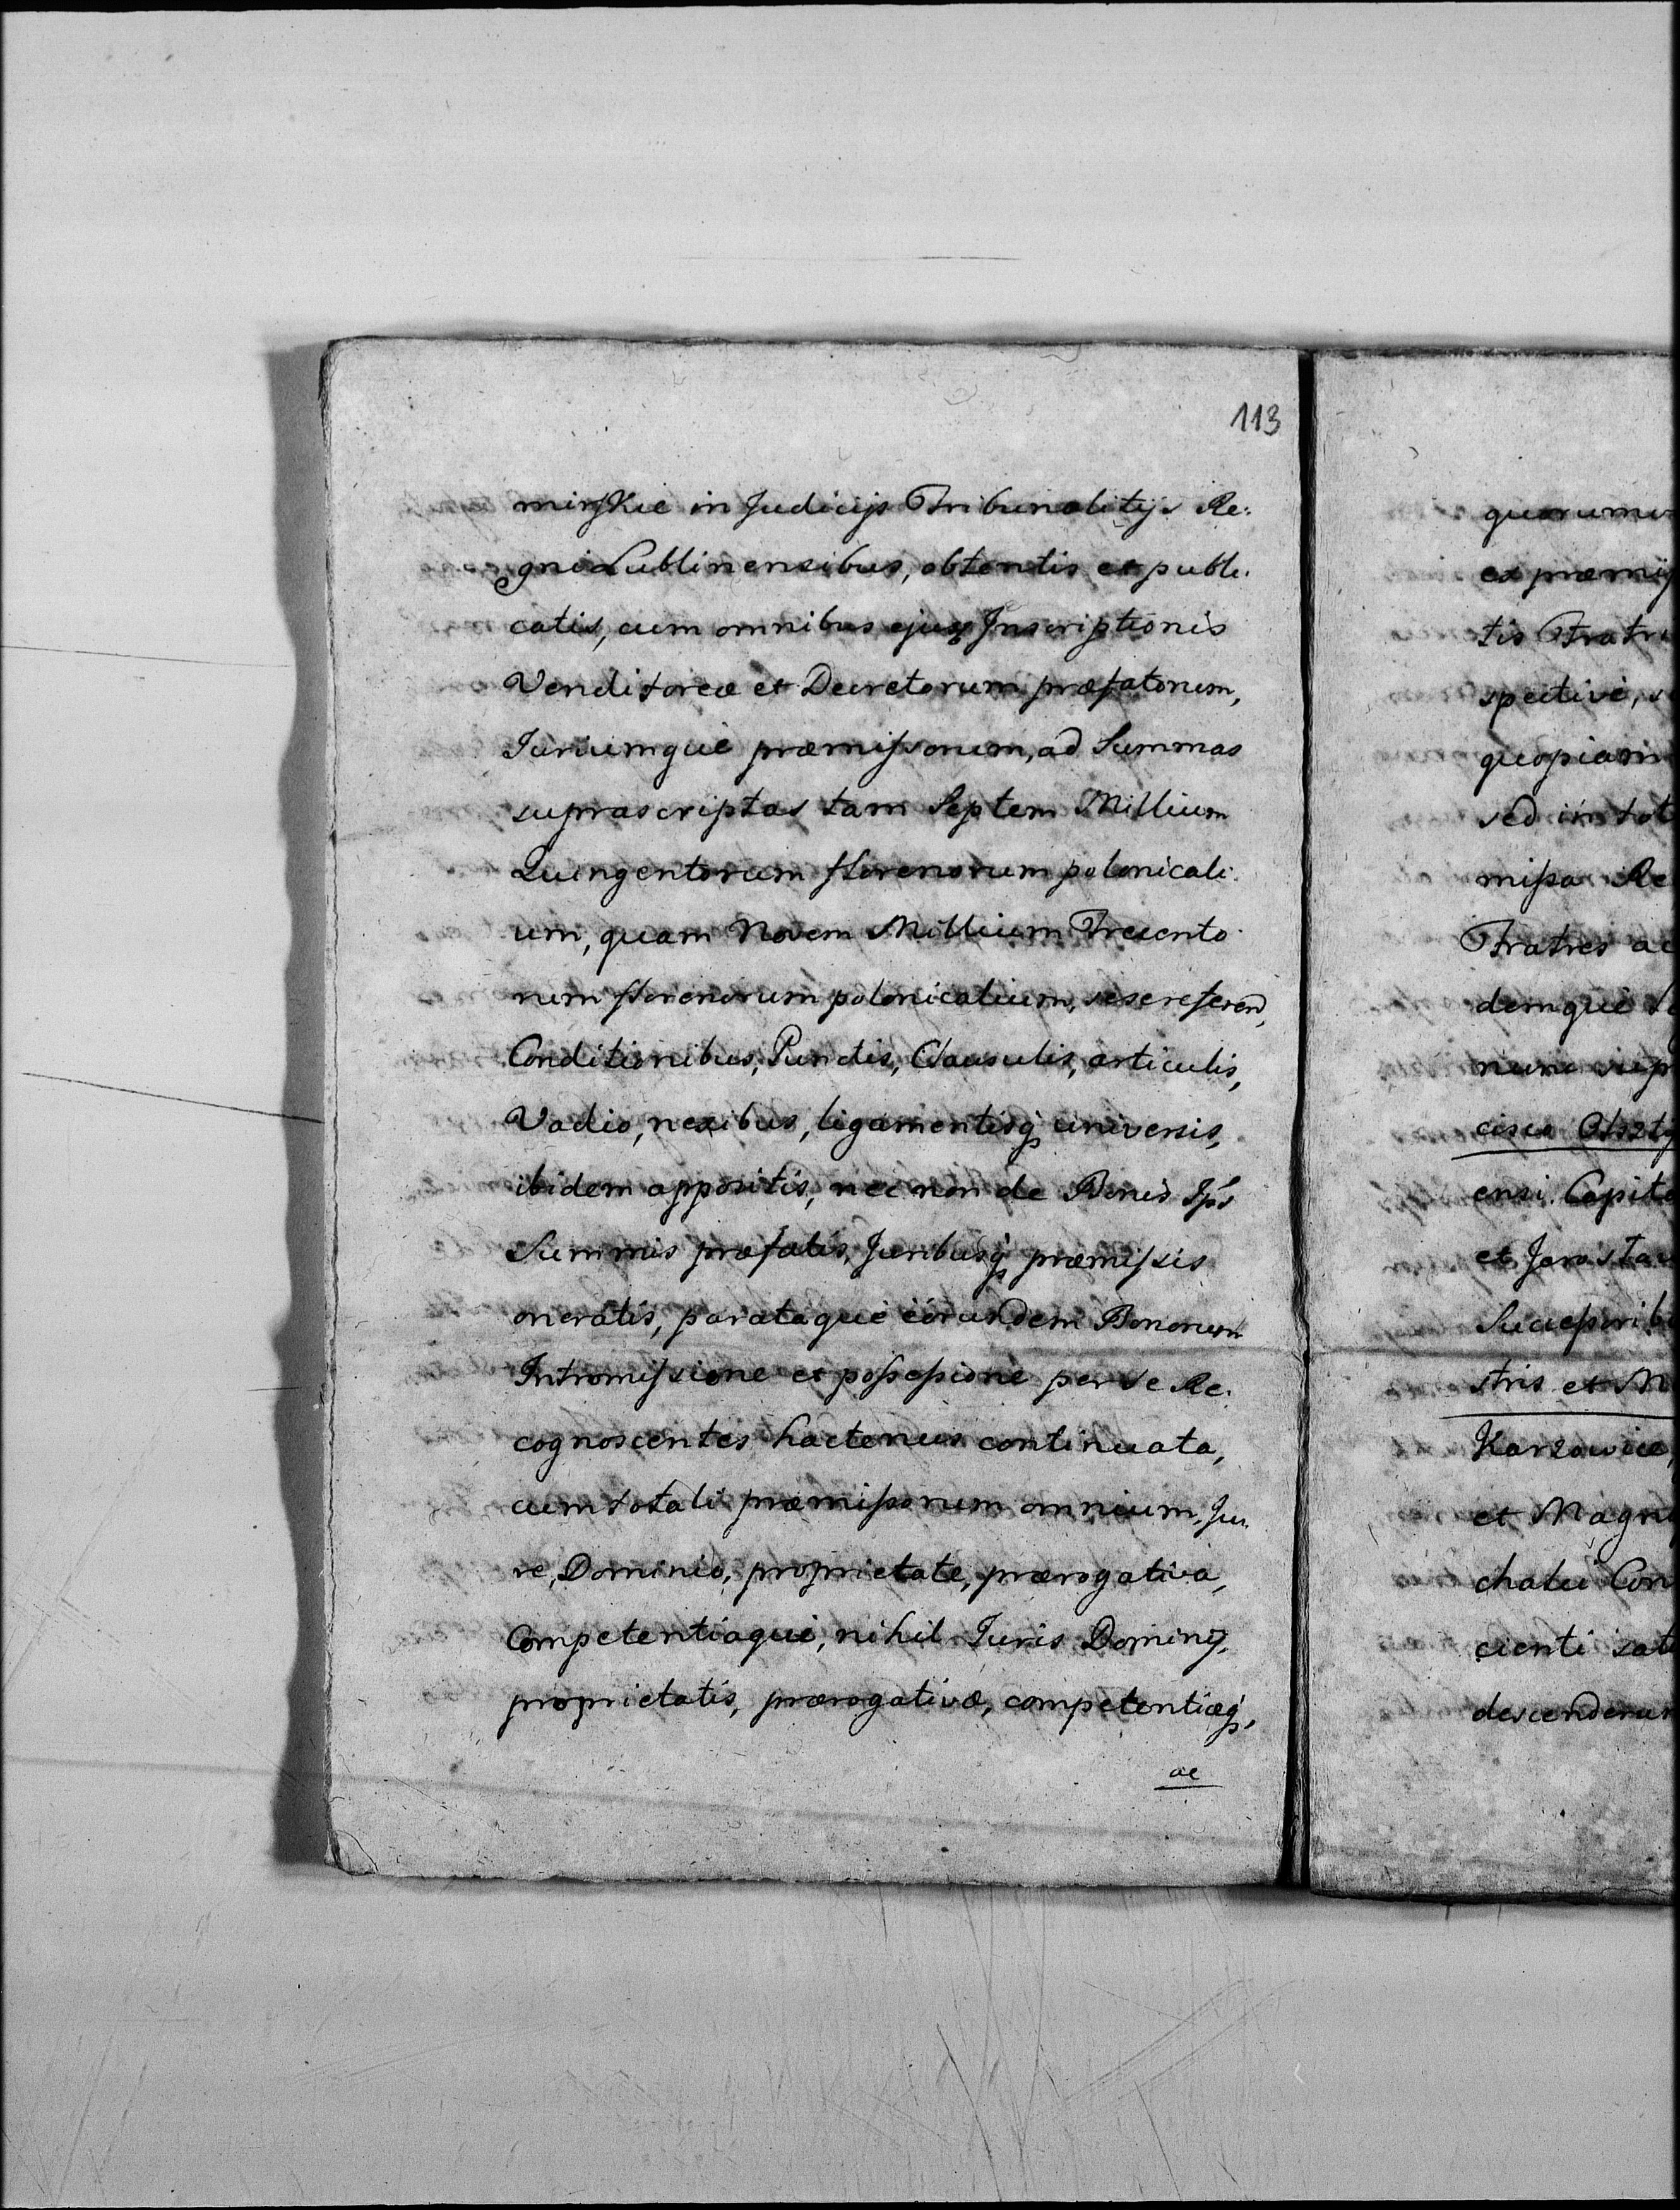 113
minskie in Judicijs Tribunalitijs Re:
gni Lublinensibus, obtentis et publi:
catis, cum omnibus ejusq; Inscriptionis
Venditoreæ et Decretorum præfatorum,
Juriumque præmissorum, ad Summas
suprascriptas tam Septem Millium
Quingentorum florenorum polonicali:
um, quam Novem Millium Trecento:
rum florenorum polonicalium, sese referen,
Conditionibus, Punctis, Clausulis, articulis,
Vadio, nexibus, ligamentisq; universis,
ibidem appositis, nec non de Bonis Ips
Summis præfatis, Juribusq; præmissis
oneratis, parataque eorundem Bonorum
Intromissione et possessione per se Re:
cognoscentes hactenus continuata,
cum totali præmissorum omnium, Ju:
re, Dominio, proprietate, prærogativa,
Competentiaque, nihil Juris Dominij,
proprietatis, prærogativæ, competentiæq;,
ac
quorumv
ex præmis
tis Fratri
spective, s
quopiam
sed in tot
missa Re
Fratres ac
demque
nunc
cisco Olszty
ensi. Capita
et Jarosta
Successorib
stris et M
Karzowice,
et Magni
chalei Con
cienti sat
descenderun